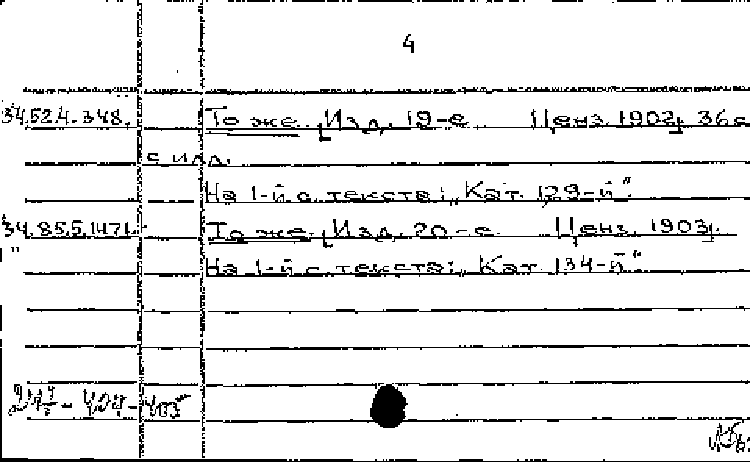 4
34.52.4.348. То же. [Изд. 19-е Ценз. 1902]. 36 с
с илл.
На 1-й с. текста: „Кат. 129-й“.
34.85.5.1471. То же. [Изд. 20-е Ценз. 1903].
" На 1-й с. текста: „Кат. 134-й“.